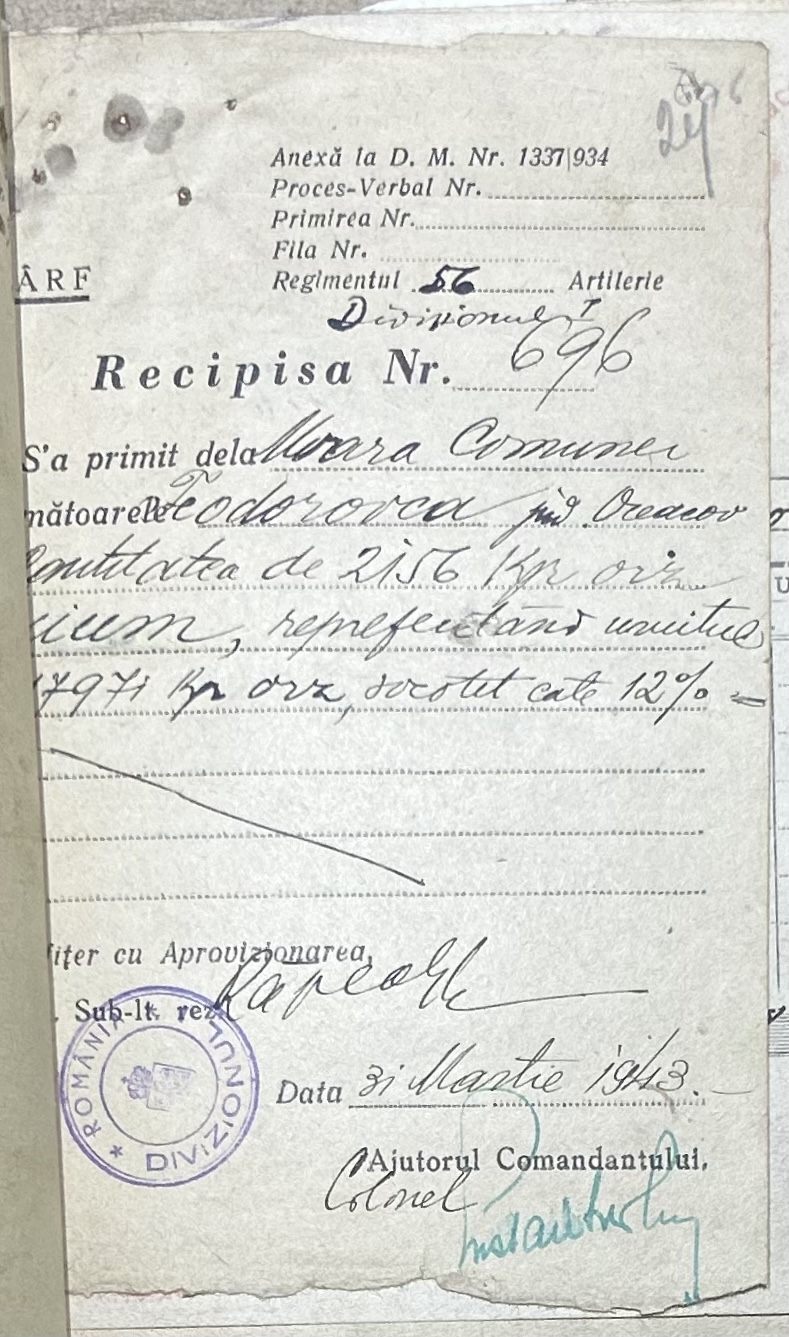 24
Anexă la D. M. Nr. 1337|934
Proces-Verbal Nr.
Primirea Nr.
Fila Nr.
ÂRF
Regimentul 56 Artilerie
Divizionul I
Recipisa Nr. 696
S'a primit dela Moara Comunei
mătoarele Teodorovca jud. Oceacov
antitatea de 2156 Kgr orz
uium, reprezentând uruitul
17971 Kgr orz, socotit cate 12%
fițer cu Aprovizionarea,
Sub-lt. rez.
ROMÂNIA
DIVIZIONUL
Data 31 Martie 1943.
Ajutorul Comandantului,
Colonel